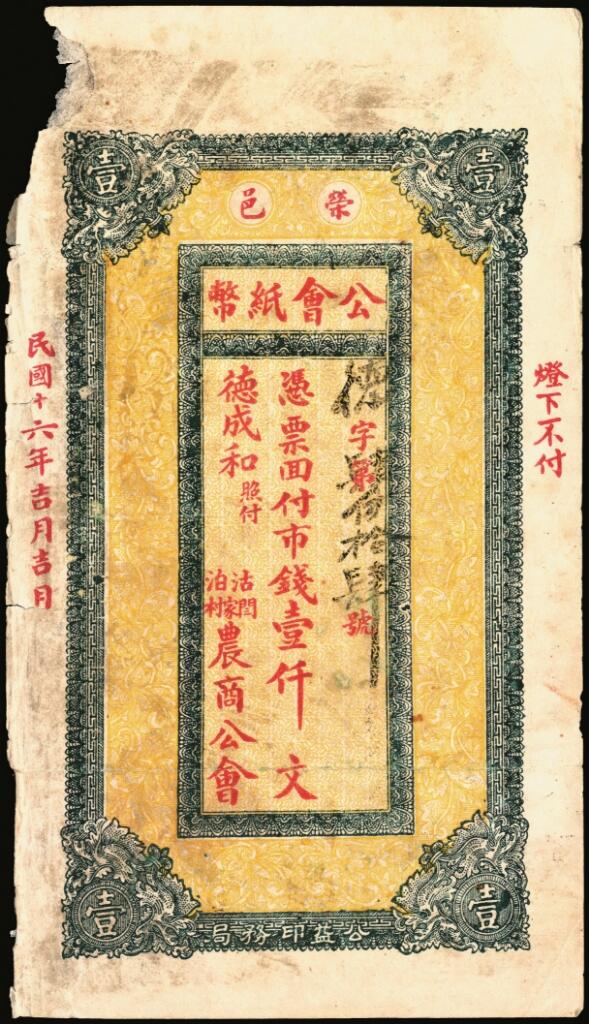 壹
壹
榮邑
公會紙幣
燈下不付
字第佰拾肆號
憑票面付市錢壹仟文
德成和照付
沽泊
閆家村
農商公會
民國十六年吉月吉日
壹
壹
公益印務局